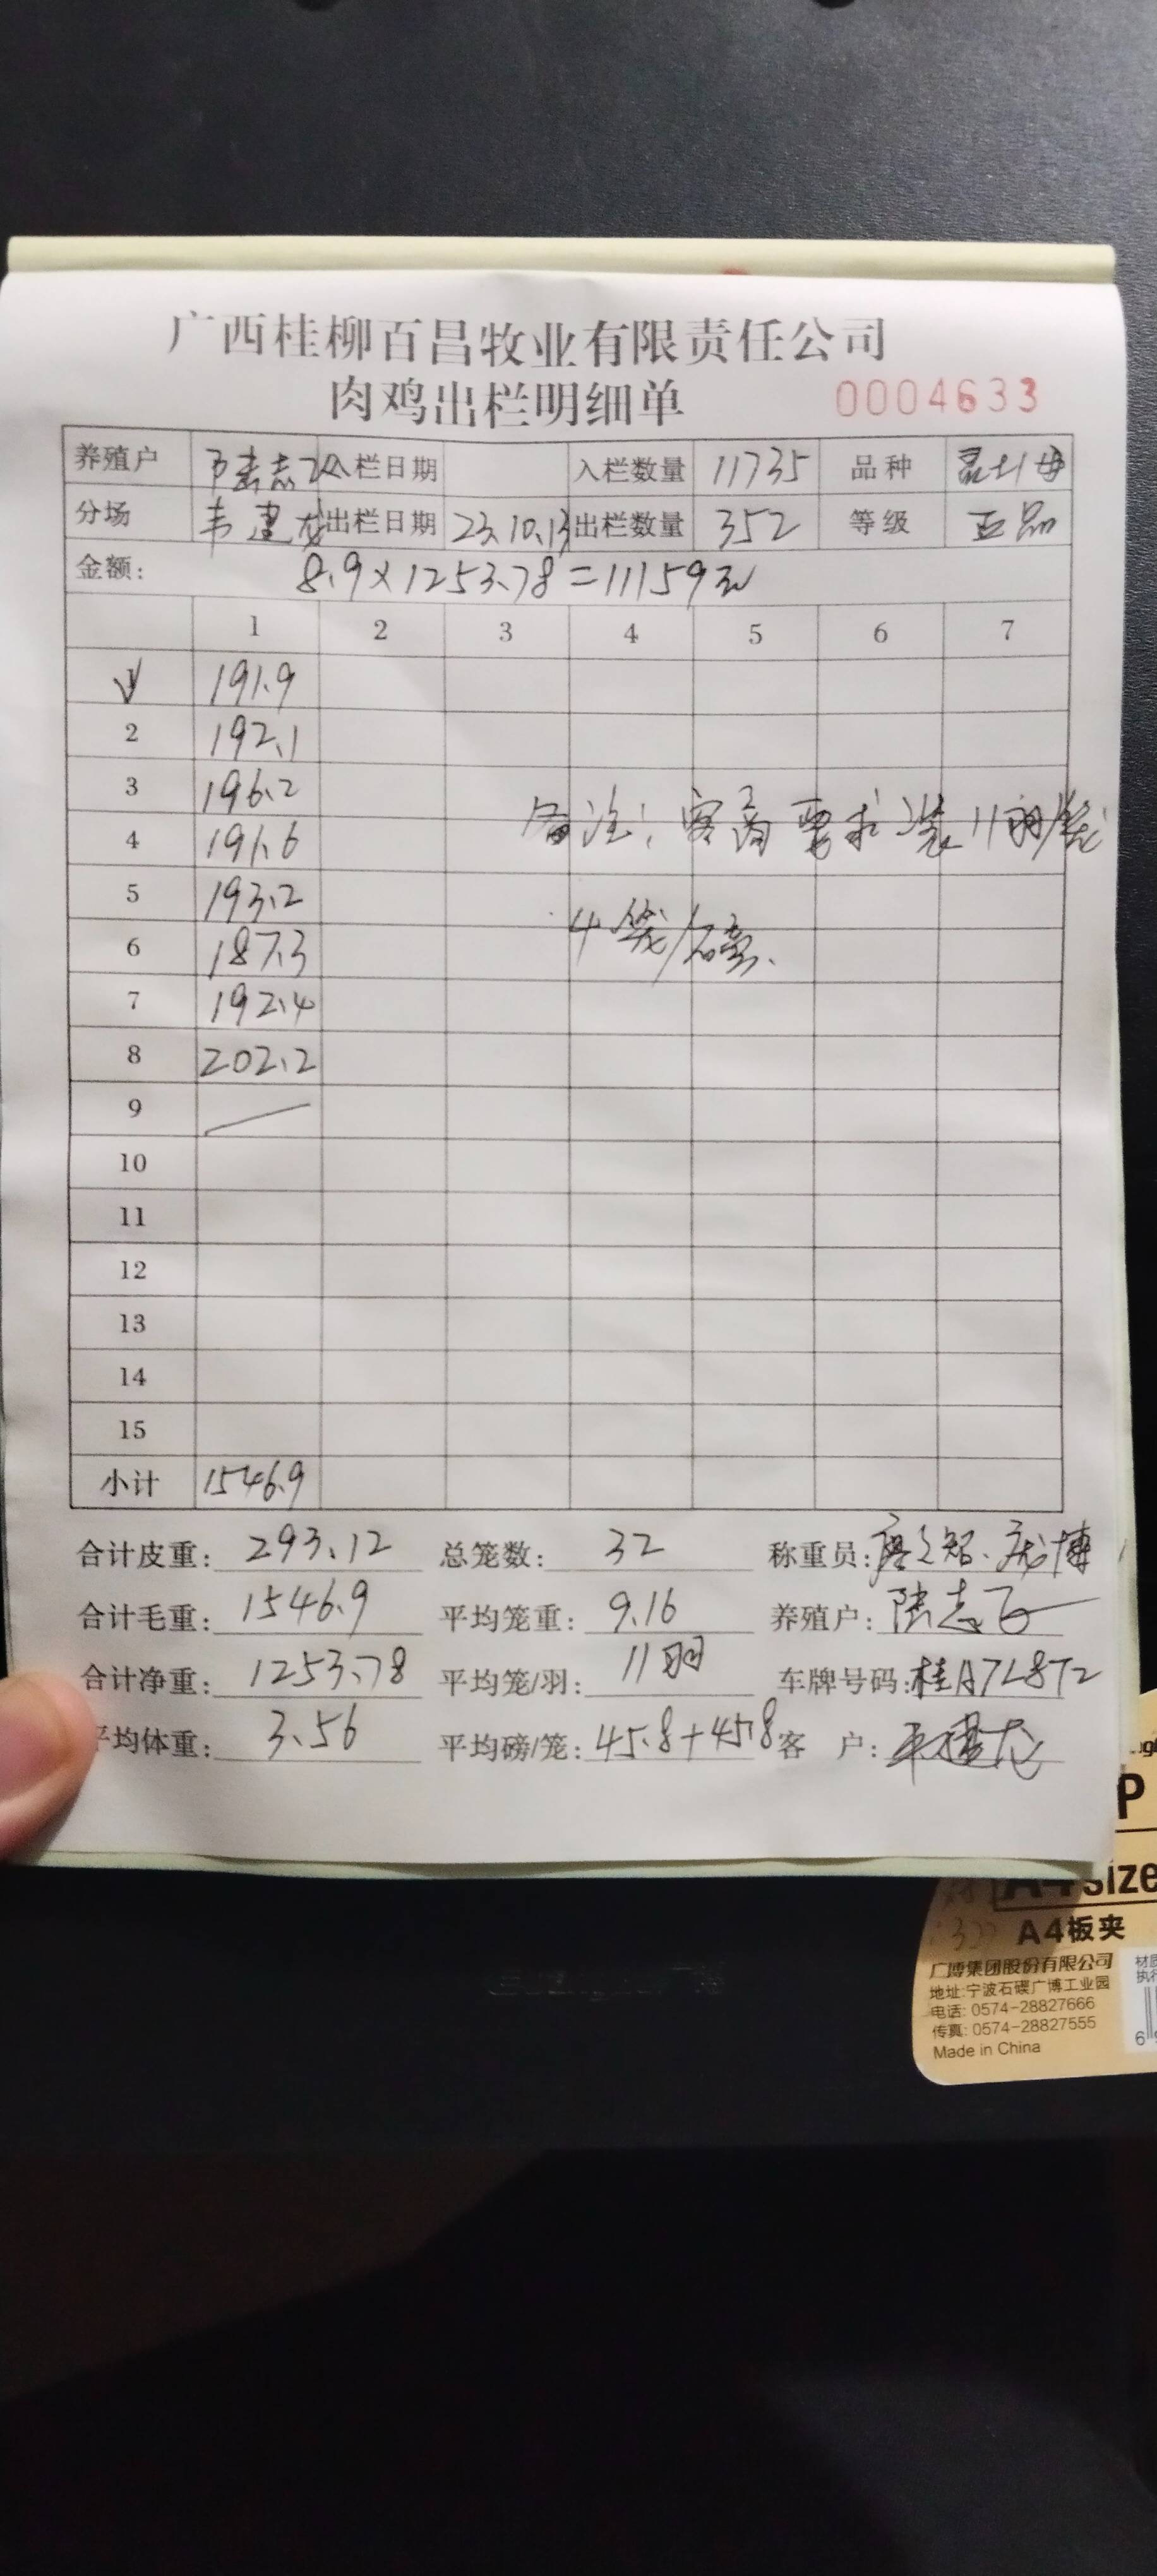 广西桂柳百昌牧业有限责任公司
肉鸡出栏明细单 0004633
养殖户 陆志飞 入栏日期 入栏数量 11735 品种
分场 韦建龙 出栏日期 23.10.13 出栏数量 352 等级 正品
金额: 8.9×1253.78=11159元
1 2 3 4 5 6 7
1 191.9
2 192.1
3 196.2
备注: 客商要求装11羽/笼
4 191.6
5 193.2
4笼/磅.
6 187.3
7 192.4
8 202.2
9
10
11
12
13
14
15
小计 1546.9
合计皮重: 293.12 总笼数: 32 称重员:
合计毛重: 1546.9 平均笼重: 9.16 养殖户: 陆志飞
合计净重: 1253.78 平均笼/羽: 11羽 车牌号码: 桂A7L8T2
平均体重: 3.56 平均磅/笼: 45.8+45.8 客 户:
P
A4 size
A4板夹
广博集团股份有限公司
地址:宁波石碶广博工业园
电话: 0574-28827666
传真: 0574-28827555
Made in China
6